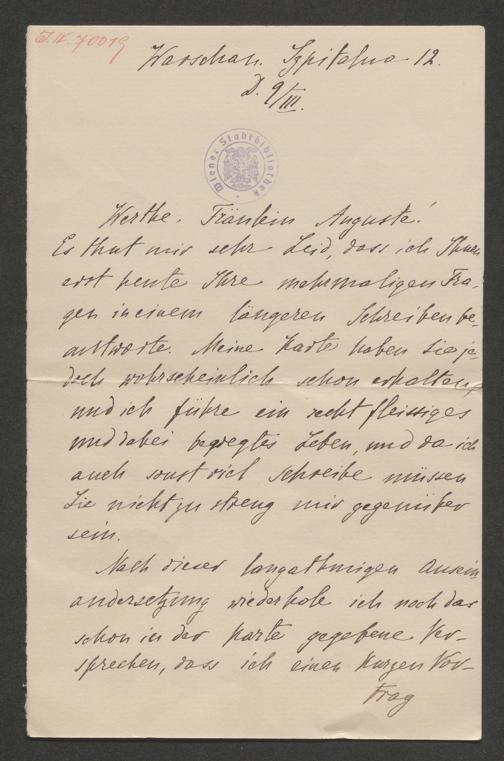 J.N. 70019
Warschau. Szpitalna 12.
D. 9/III.
Wiener Stadtbibliothek
Werthe Fräulein Auguste!
Es thut mir sehr Leid, dass ich Ihnen
erst heute Ihre mehrmaligen Fra-
gen in einem längeren Schreiben be-
antworte. Meine Karte haben Sie je-
doch wahrscheinlich schon erhalten,
und ich führe ein recht fleissiges
und dabei bewegtes Leben, und da ich
auch sonst viel schreibe müssen
Sie nicht zu streng mir gegenüber
sein.
Nach dieser langathmigen Ausein
andersetzung wiederhole ich noch das
schon in der Karte gegebene Ver-
sprechen, dass ich einen kurzen Vor-
trag